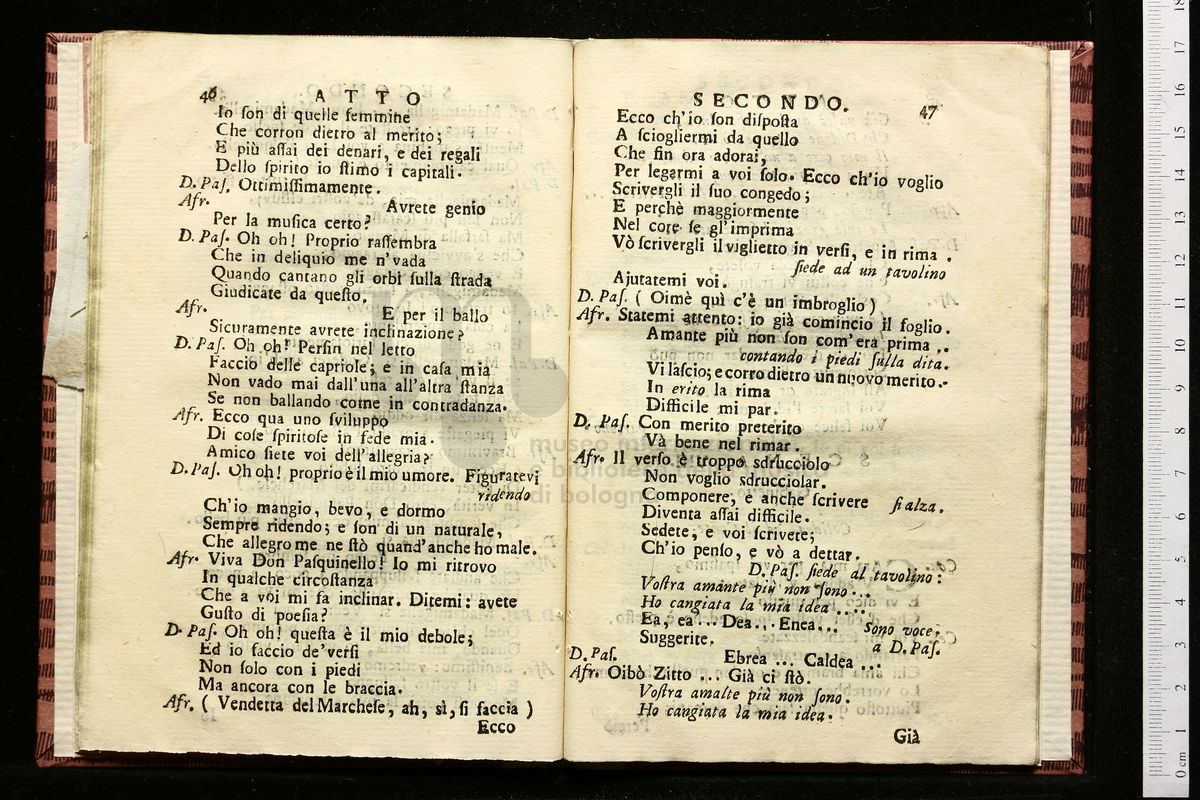 46 ATTO
Io ſon di quelle femmine
Che corron dietro al merito;
E più aſſai dei denari, e dei regali
Dello ſpirito io ſtimo i capitali.
D. Paſ. Ottimiſſimamente.
Afr. Avrete genio
Per la muſica certo?
D. Paſ. Oh oh! Proprio raſſembra
Che in deliquio me n'vada
Quando cantano gli orbi ſulla ſtrada
Giudicate da queſto.
Afr. E per il ballo
Sicuramente avrete inclinazione?
D. Paſ. Oh oh! Perſin nel letto
Faccio delle capriole; e in caſa mia
Non vado mai dall'una all'altra ſtanza
Se non ballando come in contradanza.
Afr. Ecco qua uno ſviluppo
Di coſe ſpiritoſe in fede mia.
Amico ſiete voi dell'allegria?
D. Paſ. Oh oh! proprio è il mio umore. Figuratevi
ridendo
Ch'io mangio, bevo, e dormo
Sempre ridendo; e ſon di un naturale,
Che allegro me ne ſtò quand'anche ho male.
Afr. Viva Don Paſquinello! Io mi ritrovo
In qualche circoſtanza
Che a voi mi fa inclinar. Ditemi: avete
Guſto di poeſia?
D. Paſ. Oh oh! queſta è il mio debole;
Ed io faccio de'verſi
Non ſolo con i piedi
Ma ancora con le braccia.
Afr. ( Vendetta del Marcheſe, ah, sì, ſi faccia )
Ecco
SECONDO. 47
Ecco ch'io ſon diſpoſta
A ſciogliermi da quello
Che fin ora adorai,
Per legarmi a voi ſolo. Ecco ch'io voglio
Scrivergli il ſuo congedo;
E perchè maggiormente
Nel core ſe gl'imprima
Vò ſcrivergli il viglietto in verſi, e in rima.
ſiede ad un tavolino
Ajutatemi voi.
D. Paſ. ( Oimè quì c'è un imbroglio )
Afr. Statemi attento: io già comincio il foglio.
Amante più non ſon com'era prima ..
contando i piedi ſulla dita.
Vi laſcio; e corro dietro un nuovo merito.
In erito la rima
Difficile mi par.
D. Paſ. Con merito preterito
Và bene nel rimar.
Afr. Il verſo è troppo sdrucciolo
Non voglio sdrucciolar.
Componere, e anche ſcrivere ſi alza.
Diventa aſſai difficile.
Sedete, e voi ſcrivete;
Ch'io penſo, e vò a dettar.
D. Paſ. ſiede al tavolino:
Voſtra amante più non ſono...
Ho cangiata la mia idea ....
Ea, ea ... Dea... Enea... Sono voce.
Suggerite. a D. Paſ.
D. Paſ. Ebrea ... Caldea ...
Afr. Oibò Zitto ... Già ci ſtò.
Voſtra amalte più non ſono.
Ho cangiata la mia idea.
Già